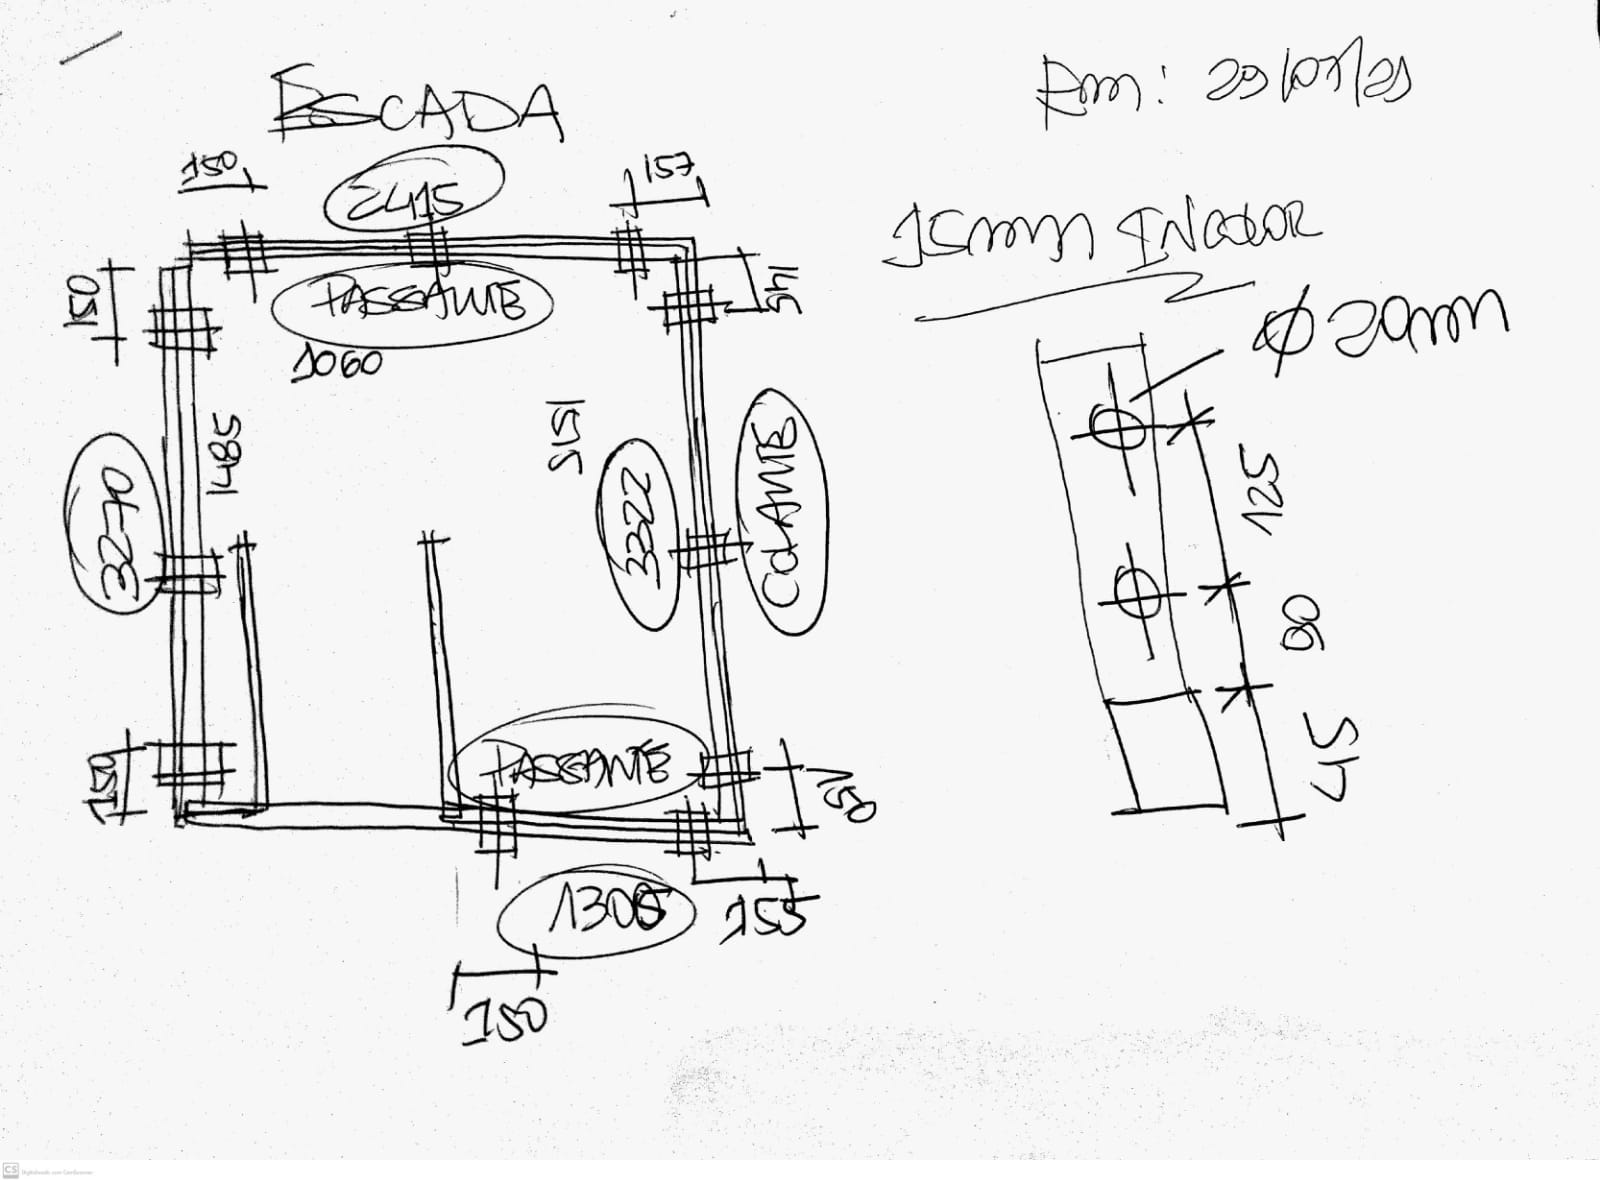 ESCADA
Rm: 29/07/21
150
2415
157
15mm INcolor
150
PASSANTE
145
1060
Ø 20mm
1485
1515
3270
3322
COLANTE
125
90
150
PASSANTE
150
45
1305
155
150